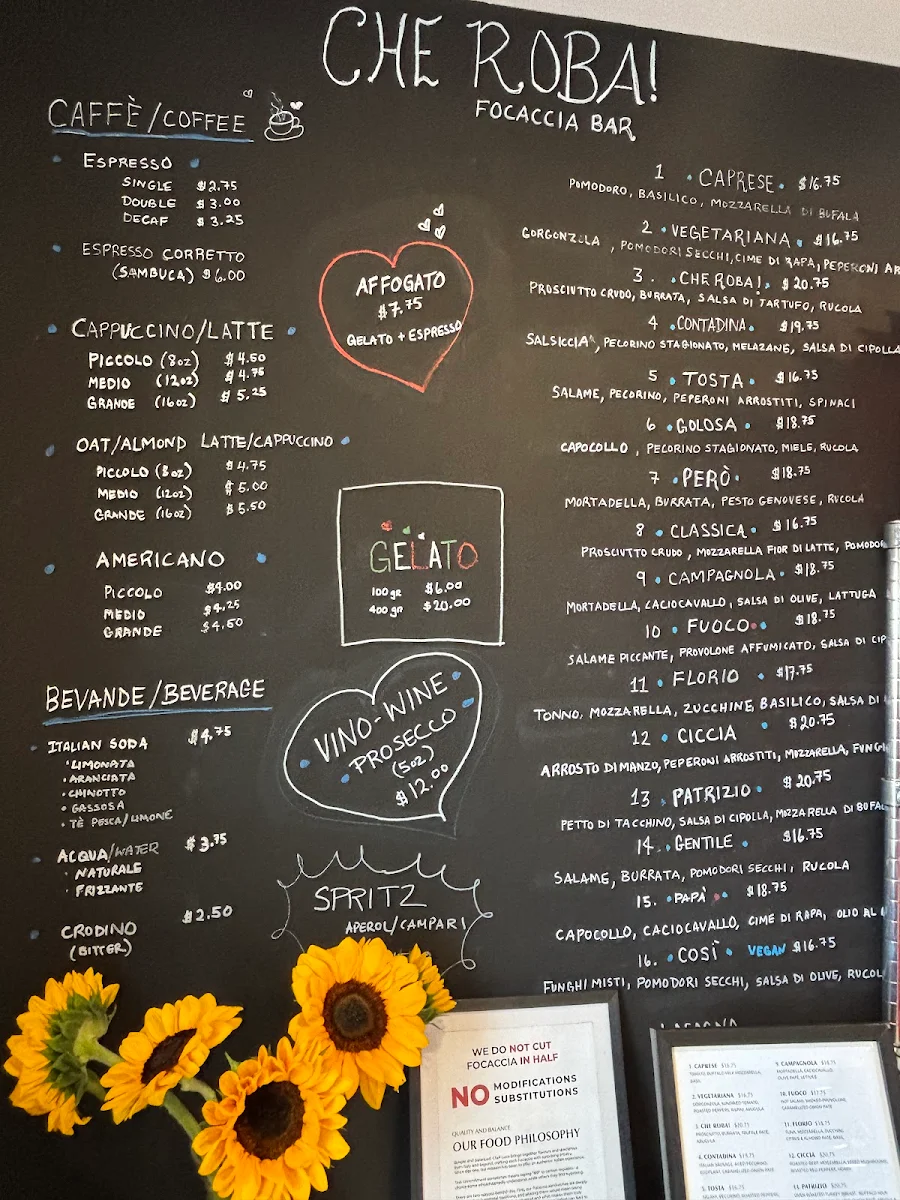 CHE ROBA!
FOCACCIA BAR
CAFFÈ/COFFEE
ESPRESSO
SINGLE $2.75
DOUBLE $3.00
DECAF $3.25
ESPRESSO CORRETTO
(SAMBUCA) $6.00
CAPPUCCINO/LATTE
PICCOLO (8oz) $4.50
MEDIO (12oz) $4.75
GRANDE (16oz) $5.25
OAT/ALMOND LATTE/CAPPUCCINO
PICCOLO (8oz) $4.75
MEDIO (12oz) $5.00
GRANDE (16oz) $5.50
AMERICANO
PICCOLO $4.00
MEDIO $4.25
GRANDE $4.50
BEVANDE/BEVERAGE
ITALIAN SODA $4.75
LIMONATA
ARANCIATA
CHINOTTO
GASSOSA
TÈ PESCA/LIMONE
ACQUA/WATER $3.75
NATURALE
FRIZZANTE
CRODINO $2.50
(BITTER)
AFFOGATO
$7.75
GELATO + ESPRESSO
GELATO
100gr $6.00
400gr $20.00
VINO-WINE
PROSECCO
(5oz)
$12.00
SPRITZ
APEROL/CAMPARI
1 CAPRESE $16.75
POMODORO, BASILICO, MOZZARELLA DI BUFALA
2 VEGETARIANA $16.75
GORGONZOLA, POMODORI SECCHI, CIME DI RAPA, PEPERONI AR
3. CHE ROBA! $20.75
PROSCIUTTO CRUDO, BURRATA, SALSA DI TARTUFO, RUCOLA
4 CONTADINA $19.75
SALSICCIA, PECORINO STAGIONATO, MELAZANE, SALSA DI CIPOLLA
5 TOSTA $16.75
SALAME, PECORINO, PEPERONI ARROSTITI, SPINACI
6 GOLOSA $18.75
CAPOCOLLO, PECORINO STAGIONATO, MIELE, RUCOLA
7 PERÒ $18.75
MORTADELLA, BURRATA, PESTO GENOVESE, RUCOLA
8 CLASSICA $16.75
PROSCIUTTO CRUDO, MOZZARELLA FIOR DI LATTE, POMODOR
9 CAMPAGNOLA $18.75
MORTADELLA, CACIOCAVALLO, SALSA DI OLIVE, LATTUGA
10 FUOCO $18.75
SALAME PICCANTE, PROVOLONE AFFUMICATO, SALSA DI CIP
11 FLORIO $17.75
TONNO, MOZZARELLA, ZUCCHINE, BASILICO, SALSA DI
12 CICCIA $20.75
ARROSTO DI MANZO, PEPERONI ARROSTITI, MOZZARELLA, FUNGI
13 PATRIZIO $20.75
PETTO DI TACCHINO, SALSA DI CIPOLLA, MOZZARELLA DI BUFAL
14. GENTILE $16.75
SALAME, BURRATA, POMODORI SECCHI, RUCOLA
15. PAPÀ $18.75
CAPOCOLLO, CACIOCAVALLO, CIME DI RAPA, OLIO AL
16. COSÌ VEGAN $16.75
FUNGHI MISTI, POMODORI SECCHI, SALSA DI OLIVE, RUCOL
LASAGNA
WE DO NOT CUT
FOCACCIA IN HALF
NO MODIFICATIONS
SUBSTITUTIONS
QUALITY AND BALANCE
OUR FOOD PHILOSOPHY
1. CAPRESE
2. VEGETARIANA
3. CHE ROBA!
4. CONTADINA
5. TOSTA
9. CAMPAGNOLA
10. FUOCO
11. FLORIO
12. CICCIA
13. PATRIZIO